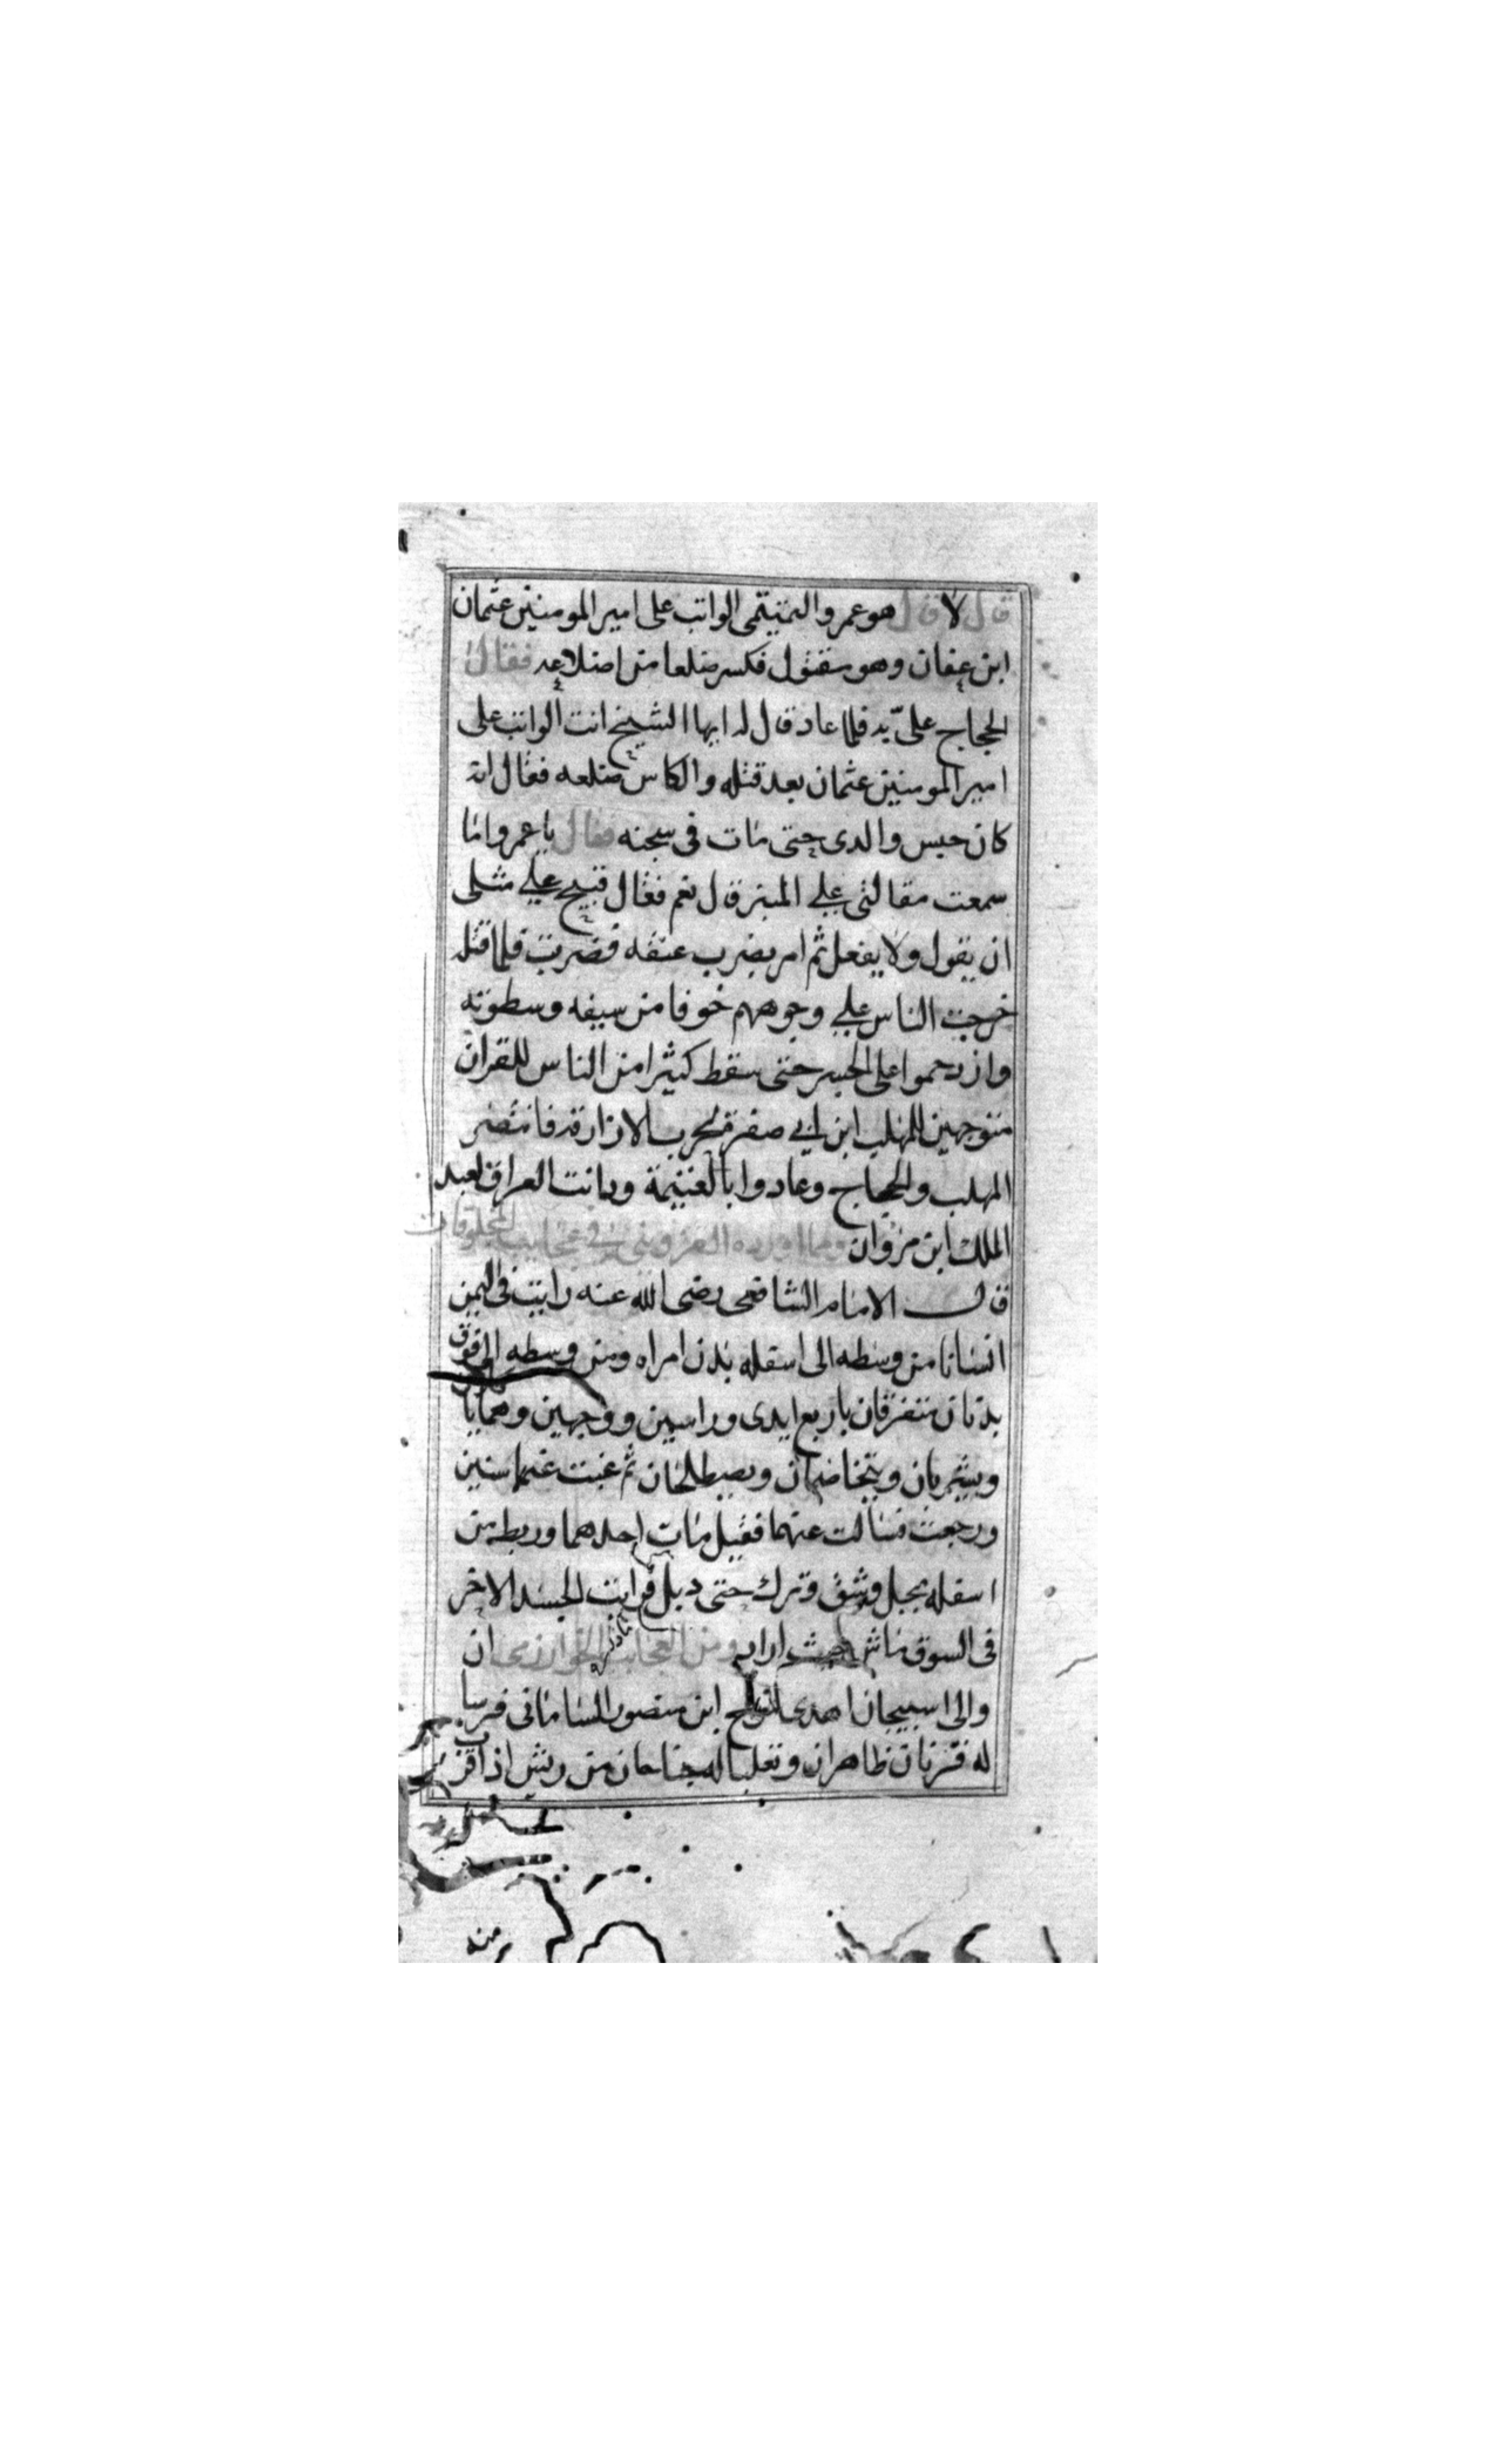 قال لا قال هو عمرو التميتمى الواثب على امير المومنين عثمان
ابن عفان وهو مقتول فكسر ضلعا من اضلاعه فقال
الحجاج على به فلما عاد قال له ايها الشيخ انت الواثب على
امير المومنين عثمان بعد قتله والكاسر ضلعه فقال انه
كان حبس والدى حتى مات فى سجنه فقال يا عمرو اما
سمعت مقالتى على المنبر قال نعم فقال قبيح على مثلى
ان يقول ولا يفعل ثم امر بضرب عنقه فضربت فلما قتله
خرجت الناس على وجوههم خوفا من سيفه وسطوته
وازدحموا على الجسر حتى سقط كثيرا من الناس للقران
متوجهين للمهلب ابن ابى صفرة لحرب الازارقه فانتصر
المهلب والحجاج وعادوا بالغنيمة ودانت العراق لعبد
الملك ابن مروان ومما اورده القزوينى فى عجايب المخلوقات
قال الامام الشافعى رضى الله عنه رايت فى اليمن
انسانا من وسطه الى اسفله بدن امراه ومن وسطه الى فوق
بدنان متفرقان باربع ايدى وراسين ووجهين وهما يا
ويشربان ويتخاصمان ويصطلحان ثم غبت عنهما سنين
ورجعت فسالت عنهما فقيل مات احدهما وربط من
اسفله بحبل وشق وترك حتى دبل فرايت الجسد الاخر
فى السوق ماش اراد ومن العجايب الخوارزمى ان
والى اسبيجان اهدى لنوح ابن منصور السامانى فرسا
له قرنان ظاهران وتعلبا له جناحان من ريش اذا قرب
منه